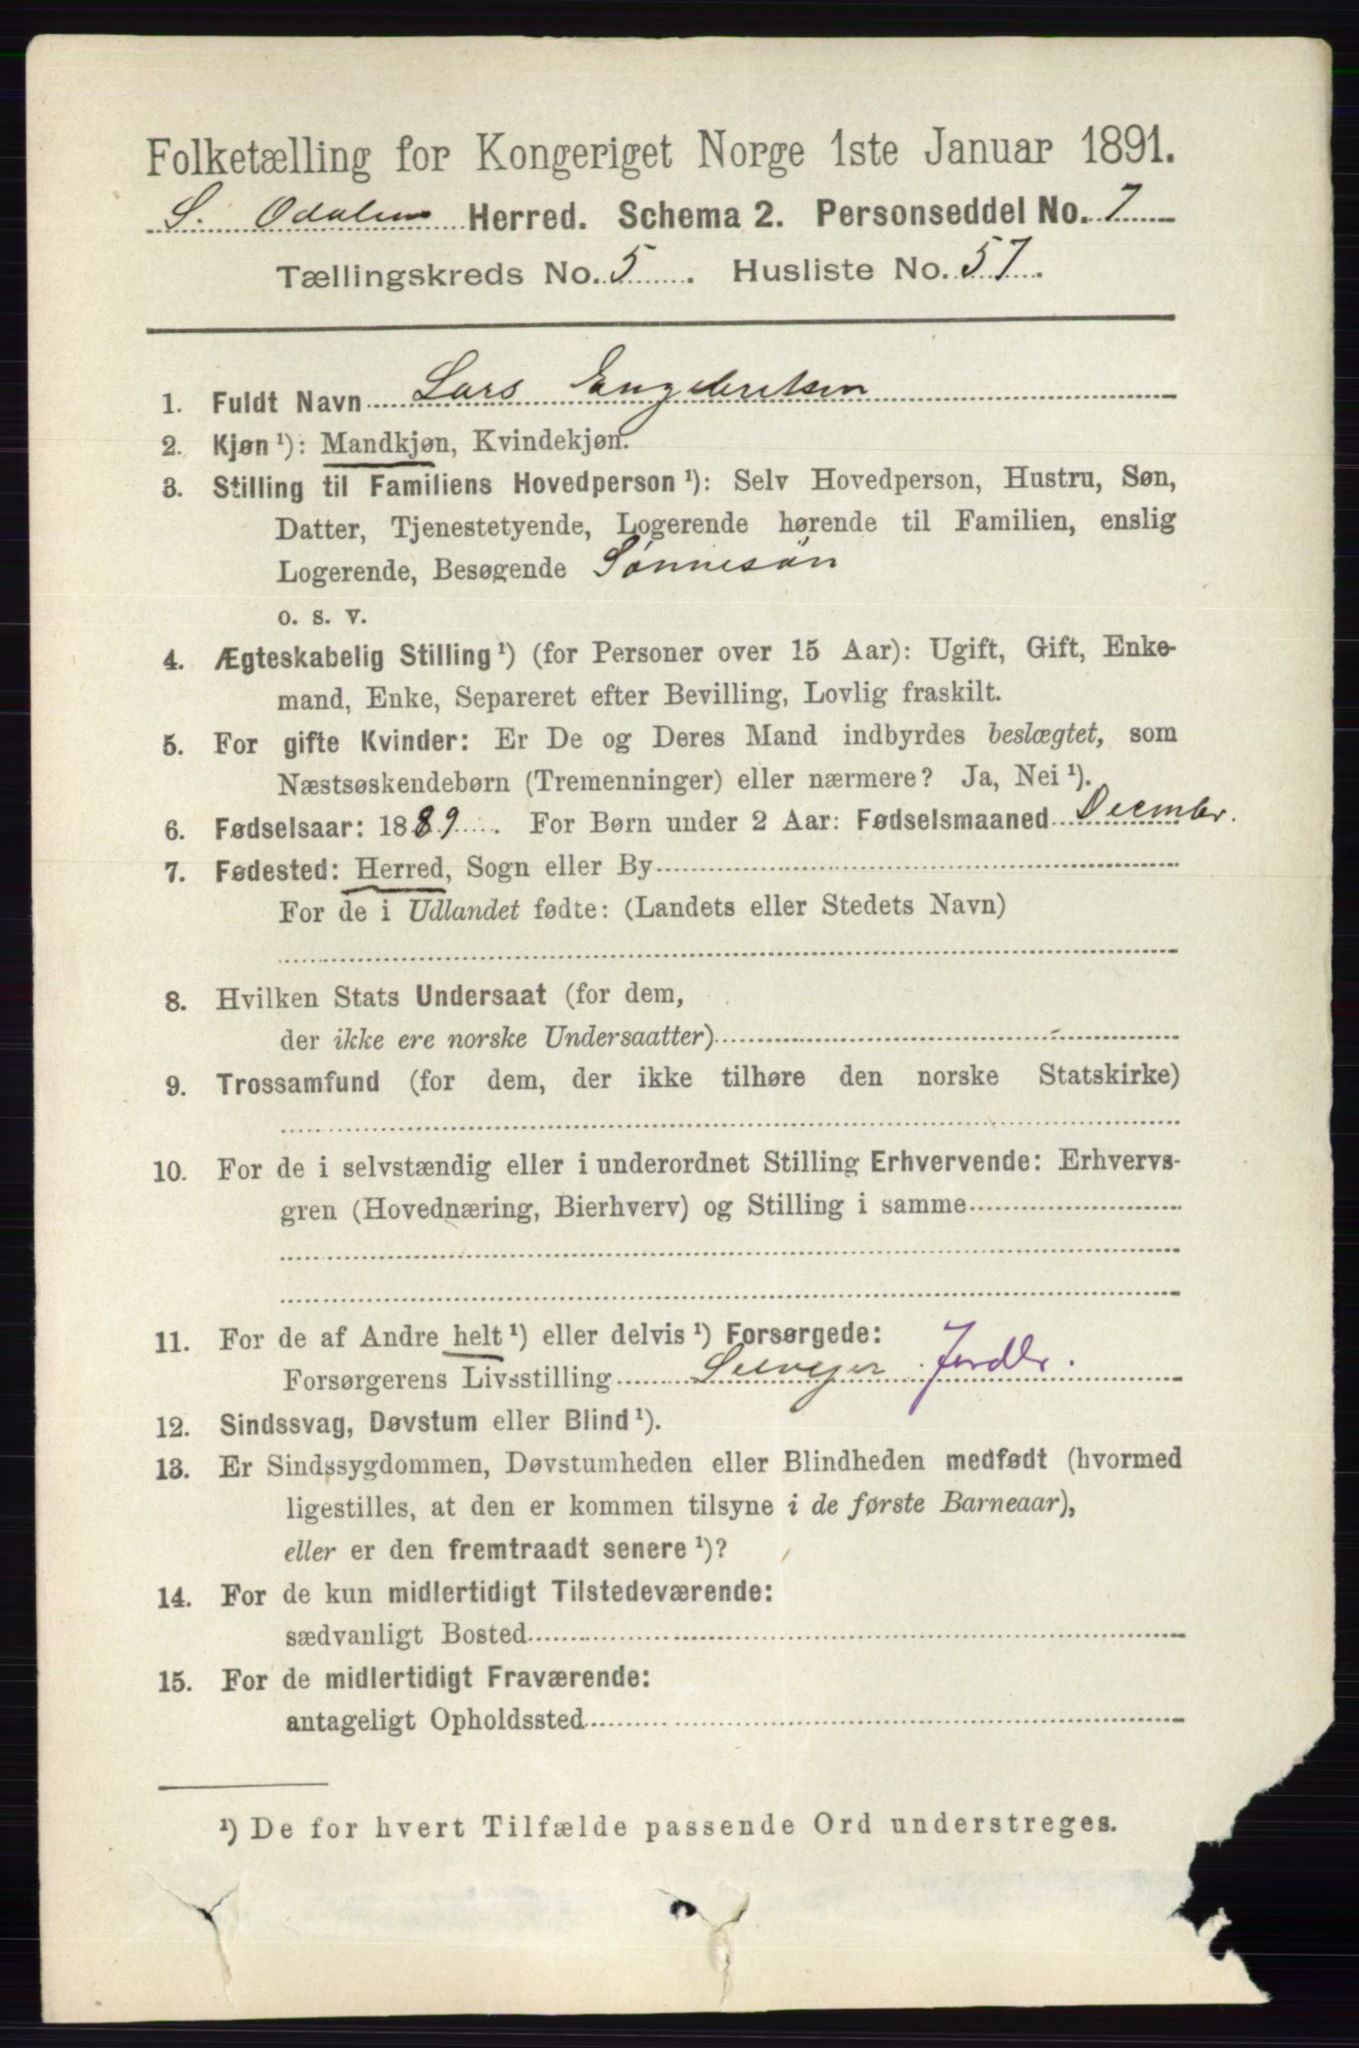 Folketælling for Kongeriget Norge 1ste Januar 1891.
S. Odalen Herred. Schema 2. Personseddel No. 7
Tællingskreds No. 5. Husliste No. 57.
1. Fuldt Navn Lars Engebretsen
2. Kjøn ¹): Mandkjøn, Kvindekjøn.
3. Stilling til Familiens Hovedperson ¹): Selv Hovedperson, Hustru, Søn,
Datter, Tjenestetyende, Logerende hørende til Familien, enslig
Logerende, Besøgende Sønnesøn
o. s. v.
4. Ægteskabelig Stilling ¹) (for Personer over 15 Aar): Ugift, Gift, Enke-
mand, Enke, Separeret efter Bevilling, Lovlig fraskilt.
5. For gifte Kvinder: Er De og Deres Mand indbyrdes beslægtet, som
Næstsøskendebørn (Tremenninger) eller nærmere? Ja, Nei ¹).
6. Fødselsaar: 1889. For Børn under 2 Aar: Fødselsmaaned December.
7. Fødested: Herred, Sogn eller By
For de i Udlandet fødte: (Landets eller Stedets Navn)
8. Hvilken Stats Undersaat (for dem,
der ikke ere norske Undersaatter)
9. Trossamfund (for dem, der ikke tilhøre den norske Statskirke)
10. For de i selvstændig eller i underordnet Stilling Erhvervende: Erhvervs-
gren (Hovednæring, Bierhverv) og Stilling i samme
11. For de af Andre helt ¹) eller delvis ¹) Forsørgede:
Forsørgerens Livsstilling Selvejer Jordbr.
12. Sindssvag, Døvstum eller Blind ¹).
13. Er Sindssygdommen, Døvstumheden eller Blindheden medfødt (hvormed
ligestilles, at den er kommen tilsyne i de første Barneaar),
eller er den fremtraadt senere ¹)?
14. For de kun midlertidigt Tilstedeværende:
sædvanligt Bosted
15. For de midlertidigt Fraværende:
antageligt Opholdssted
¹) De for hvert Tilfælde passende Ord understreges.